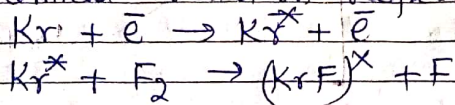 Kr + ē → Kr* + ē
Kr* + F₂ → (KrF)ˣ + F